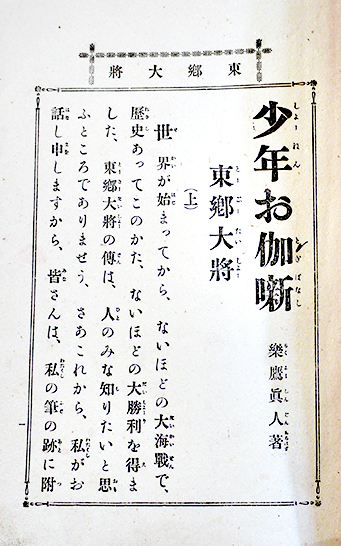 東鄕大將
少年お伽噺
樂鷹眞人著
東鄕大將
(上)
世界が始まってから、ないほどの大海戰で、
歷史あってこのかた、ないほどの大勝利を得ま
した、東鄕大將の傳は、人のみな知りたいと思
ふところでありませう、さあこれから、私がお
話し申しますから、皆さんは、私の筆の跡に附